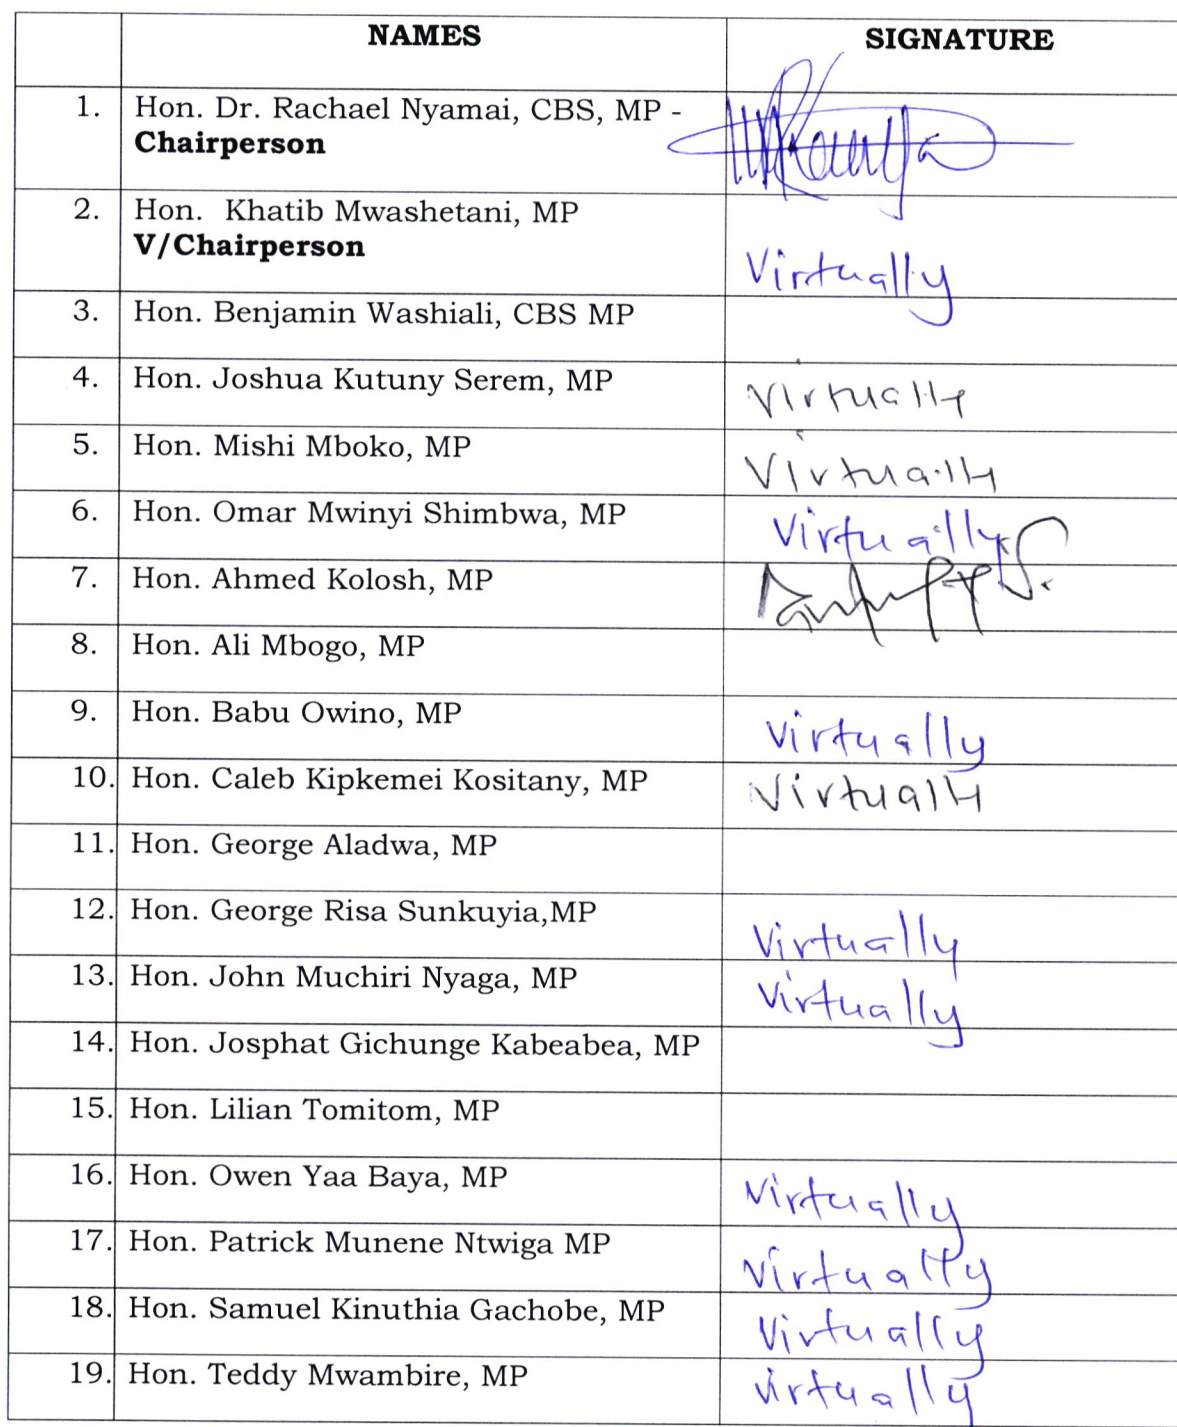 NAMES SIGNATURE
1. Hon. Dr. Rachael Nyamai, CBS, MP -
Chairperson
2. Hon. Khatib Mwashetani, MP
V/Chairperson Virtually
3. Hon. Benjamin Washiali, CBS MP
4. Hon. Joshua Kutuny Serem, MP Virtually
5. Hon. Mishi Mboko, MP Virtually
6. Hon. Omar Mwinyi Shimbwa, MP Virtually
7. Hon. Ahmed Kolosh, MP
8. Hon. Ali Mbogo, MP
9. Hon. Babu Owino, MP Virtually
10. Hon. Caleb Kipkemei Kositany, MP Virtually
11. Hon. George Aladwa, MP
12. Hon. George Risa Sunkuyia,MP Virtually
13. Hon. John Muchiri Nyaga, MP Virtually
14. Hon. Josphat Gichunge Kabeabea, MP
15. Hon. Lilian Tomitom, MP
16. Hon. Owen Yaa Baya, MP Virtually
17. Hon. Patrick Munene Ntwiga MP Virtually
18. Hon. Samuel Kinuthia Gachobe, MP Virtually
19. Hon. Teddy Mwambire, MP Virtually